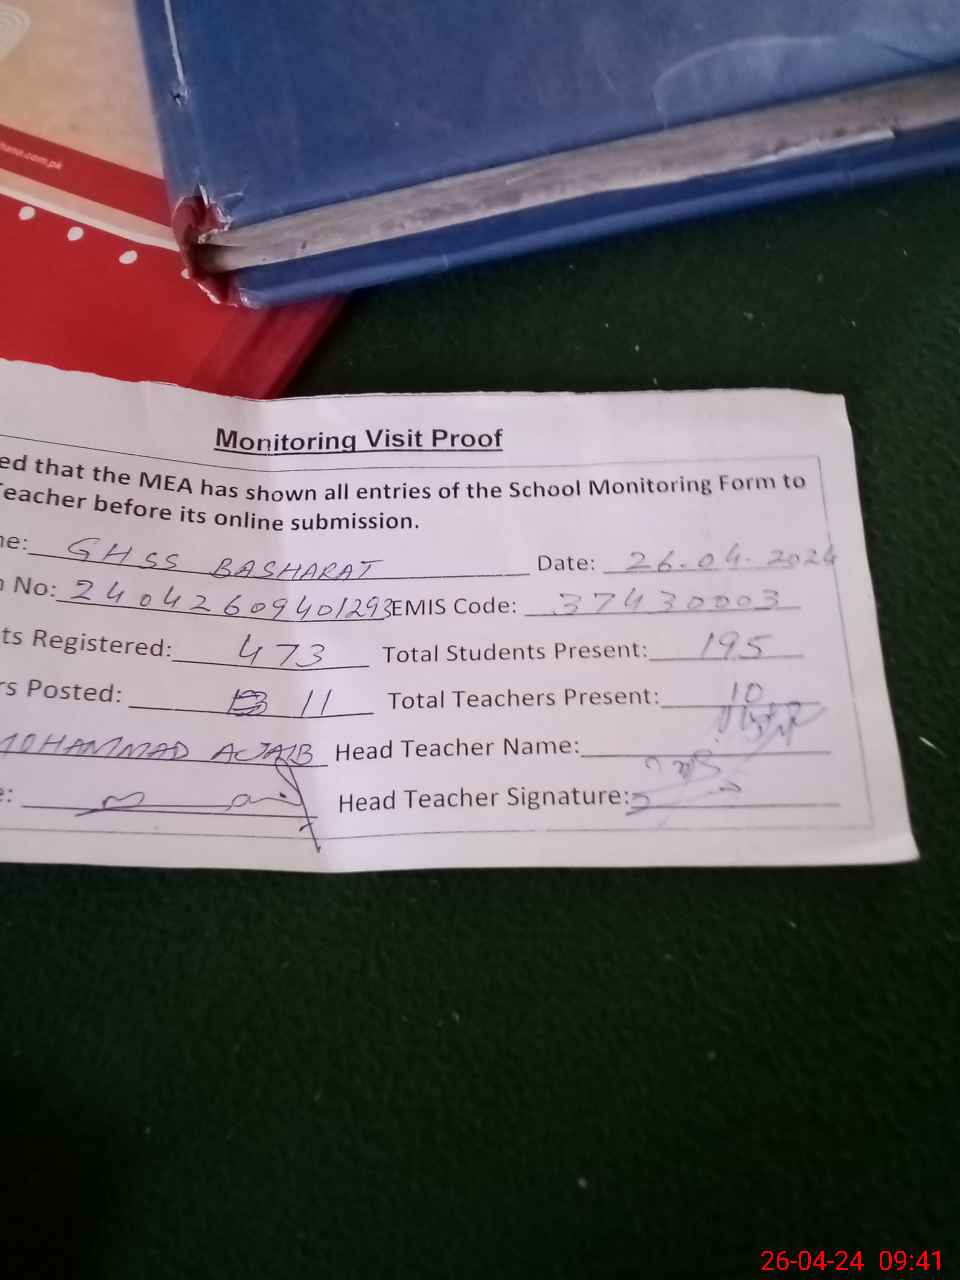 hana.com.pk
Monitoring Visit Proof
ed that the MEA has shown all entries of the School Monitoring Form to
Teacher before its online submission.
ne: GHSS BASHARAT Date: 26.04.2024
n No: 24042609401293 EMIS Code: 37430003
ts Registered: 473 Total Students Present: 195
rs Posted: 11 Total Teachers Present: 10
MOHAMMAD AJAIB Head Teacher Name:
e: Head Teacher Signature:
26-04-24 09:41